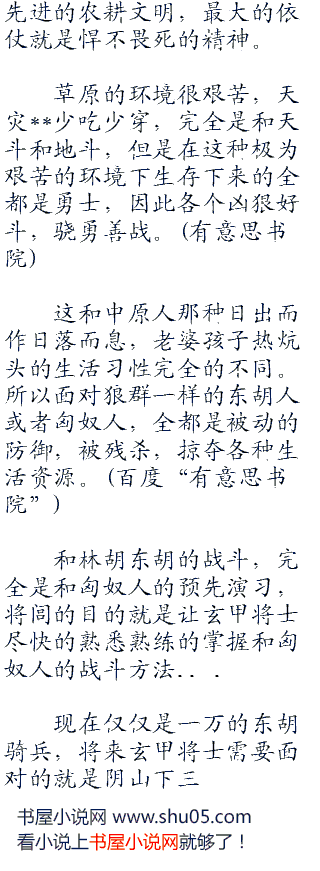 先进的农耕文明，最大的依
仗就是悍不畏死的精神。
草原的环境很艰苦，天
灾**少吃少穿，完全是和天
斗和地斗，但是在这种极为
艰苦的环境下生存下来的全
都是勇士，因此各个凶狠好
斗，骁勇善战。(有意思书
院)
这和中原人那种日出而
作日落而息，老婆孩子热炕
头的生活习性完全的不同。
所以面对狼群一样的东胡人
或者匈奴人，全都是被动的
防御，被残杀，掠夺各种生
活资源。(百度“有意思书
院”)
和林胡东胡的战斗，完
全是和匈奴人的预先演习，
将闾的目的就是让玄甲将士
尽快的熟悉熟练的掌握和匈
奴人的战斗方法...
现在仅仅是一万的东胡
骑兵，将来玄甲将士需要面
对的就是阴山下三
书屋小说网 www.shu05.com
看小说上书屋小说网就够了！